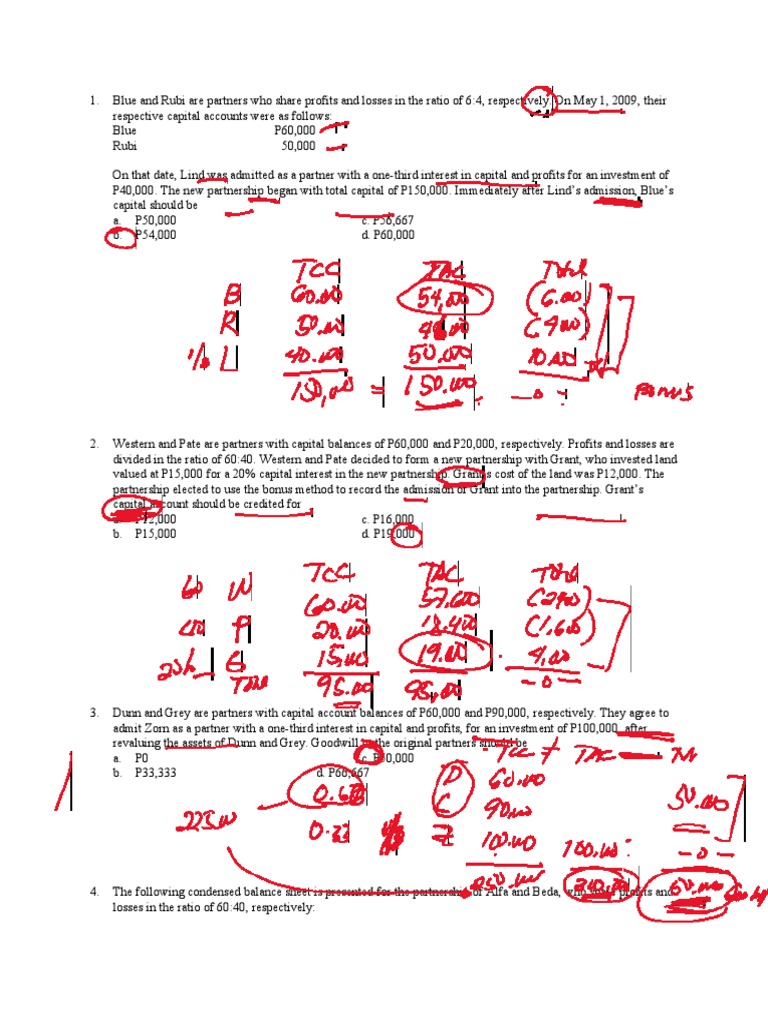 1. Blue and Rubi are partners who share profits and losses in the ratio of 6:4, respectively. On May 1, 2009, their
respective capital accounts were as follows:
Blue P60,000
Rubi 50,000
On that date, Lind was admitted as a partner with a one-third interest in capital and profits for an investment of
P40,000. The new partnership began with total capital of P150,000. Immediately after Lind's admission, Blue's
capital should be
a. P50,000 c. P56,667
b. P54,000 d. P60,000
TCC TAC Total
B 60.00 54,00 (6.00)
R 50.00 (4.00)
L 40.00 50.000 10.00
150,00 = 150.000 - 0 -
Bonus
2. Western and Pate are partners with capital balances of P60,000 and P20,000, respectively. Profits and losses are
divided in the ratio of 60:40. Western and Pate decided to form a new partnership with Grant, who invested land
valued at P15,000 for a 20% capital interest in the new partnership. Grant's cost of the land was P12,000. The
partnership elected to use the bonus method to record the admission of Grant into the partnership. Grant's
capital account should be credited for
a. P12,000 c. P16,000
b. P15,000 d. P19,000
TCC TAC Total
60 W 60.00 57,600 (2400)
40 P 20.00 18.400 (1,600)
20% G 15,00 19.00 4,00
Total 95.00 95,00 - 0 -
3. Dunn and Grey are partners with capital account balances of P60,000 and P90,000, respectively. They agree to
admit Zorn as a partner with a one-third interest in capital and profits, for an investment of P100,000, after
revaluing the assets of Dunn and Grey. Goodwill to the original partners should be
a. P0 c. P50,000
b. P33,333 d. P66,667
TCC TAC
D 60.00 50.000
0.67
G 90.00
0.33 Z 100.00 100,00 - 0 -
250.00 50.000
4. The following condensed balance sheet is presented for the partnership of Alfa and Beda, who share profits and
losses in the ratio of 60:40, respectively: